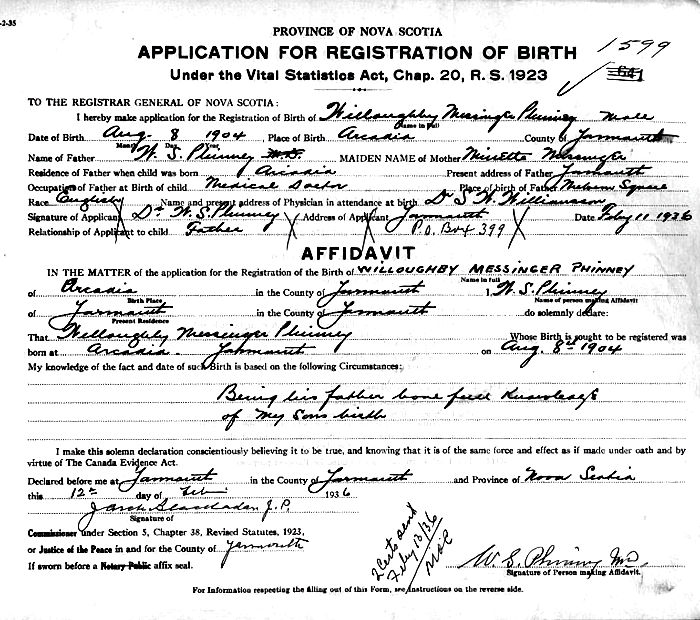 -2-35
PROVINCE OF NOVA SCOTIA
1599
APPLICATION FOR REGISTRATION OF BIRTH
641
Under the Vital Statistics Act, Chap. 20, R. S. 1923
TO THE REGISTRAR GENERAL OF NOVA SCOTIA:
I hereby make application for the Registration of Birth of Willoughby Messinger Phinney male
Name in Full
Date of Birth Aug. 8 1904, Place of Birth Arcadia County of Yarmouth
Month Day Year
Name of Father W. S. Phinney M.D. MAIDEN NAME of Mother Messinger
Residence of Father when child was born Arcadia Present address of Father Yarmouth
Occupation of Father at Birth of child Medical Doctor Place of birth of Father
Race English Name and present address of Physician in attendance at birth Dr S. W. Williamson
Signature of Applicant Dr. W. S. Phinney Address of Applicant Yarmouth Date Feby 11 1936
Relationship of Applicant to child Father P.O. Box 399
AFFIDAVIT
IN THE MATTER of the application for the Registration of the Birth of WILLOUGHBY MESSINGER PHINNEY
Name in full
of Arcadia in the County of Yarmouth I, W. S. Phinney
Birth Place Name of person making Affidavit
of Yarmouth in the County of Yarmouth do solemnly declare:
Present Residence
That Willoughby Messinger Phinney Whose Birth is sought to be registered was
born at Arcadia. Yarmouth on Aug. 8th 1904
My knowledge of the fact and date of such Birth is based on the following Circumstances:
Being his father have full Knowledge
of my sons birth
I make this solemn declaration conscientiously believing it to be true, and knowing that it is of the same force and effect as if made under oath and by
virtue of The Canada Evidence Act.
Declared before me at Yarmouth in the County of Yarmouth and Province of Nova Scotia
this 12th day of Feb. 1936
J.P.
Signature of
Commissioner under Section 5, Chapter 38, Revised Statutes, 1923,
or Justice of the Peace in and for the County of Yarmouth
If sworn before a Notary Public affix seal.
2 Certs sent
Feby 13/36
W. S. Phinney M.D.
Signature of Person making Affidavit.
For Information respecting the filling out of this Form, see Instructions on the reverse side.